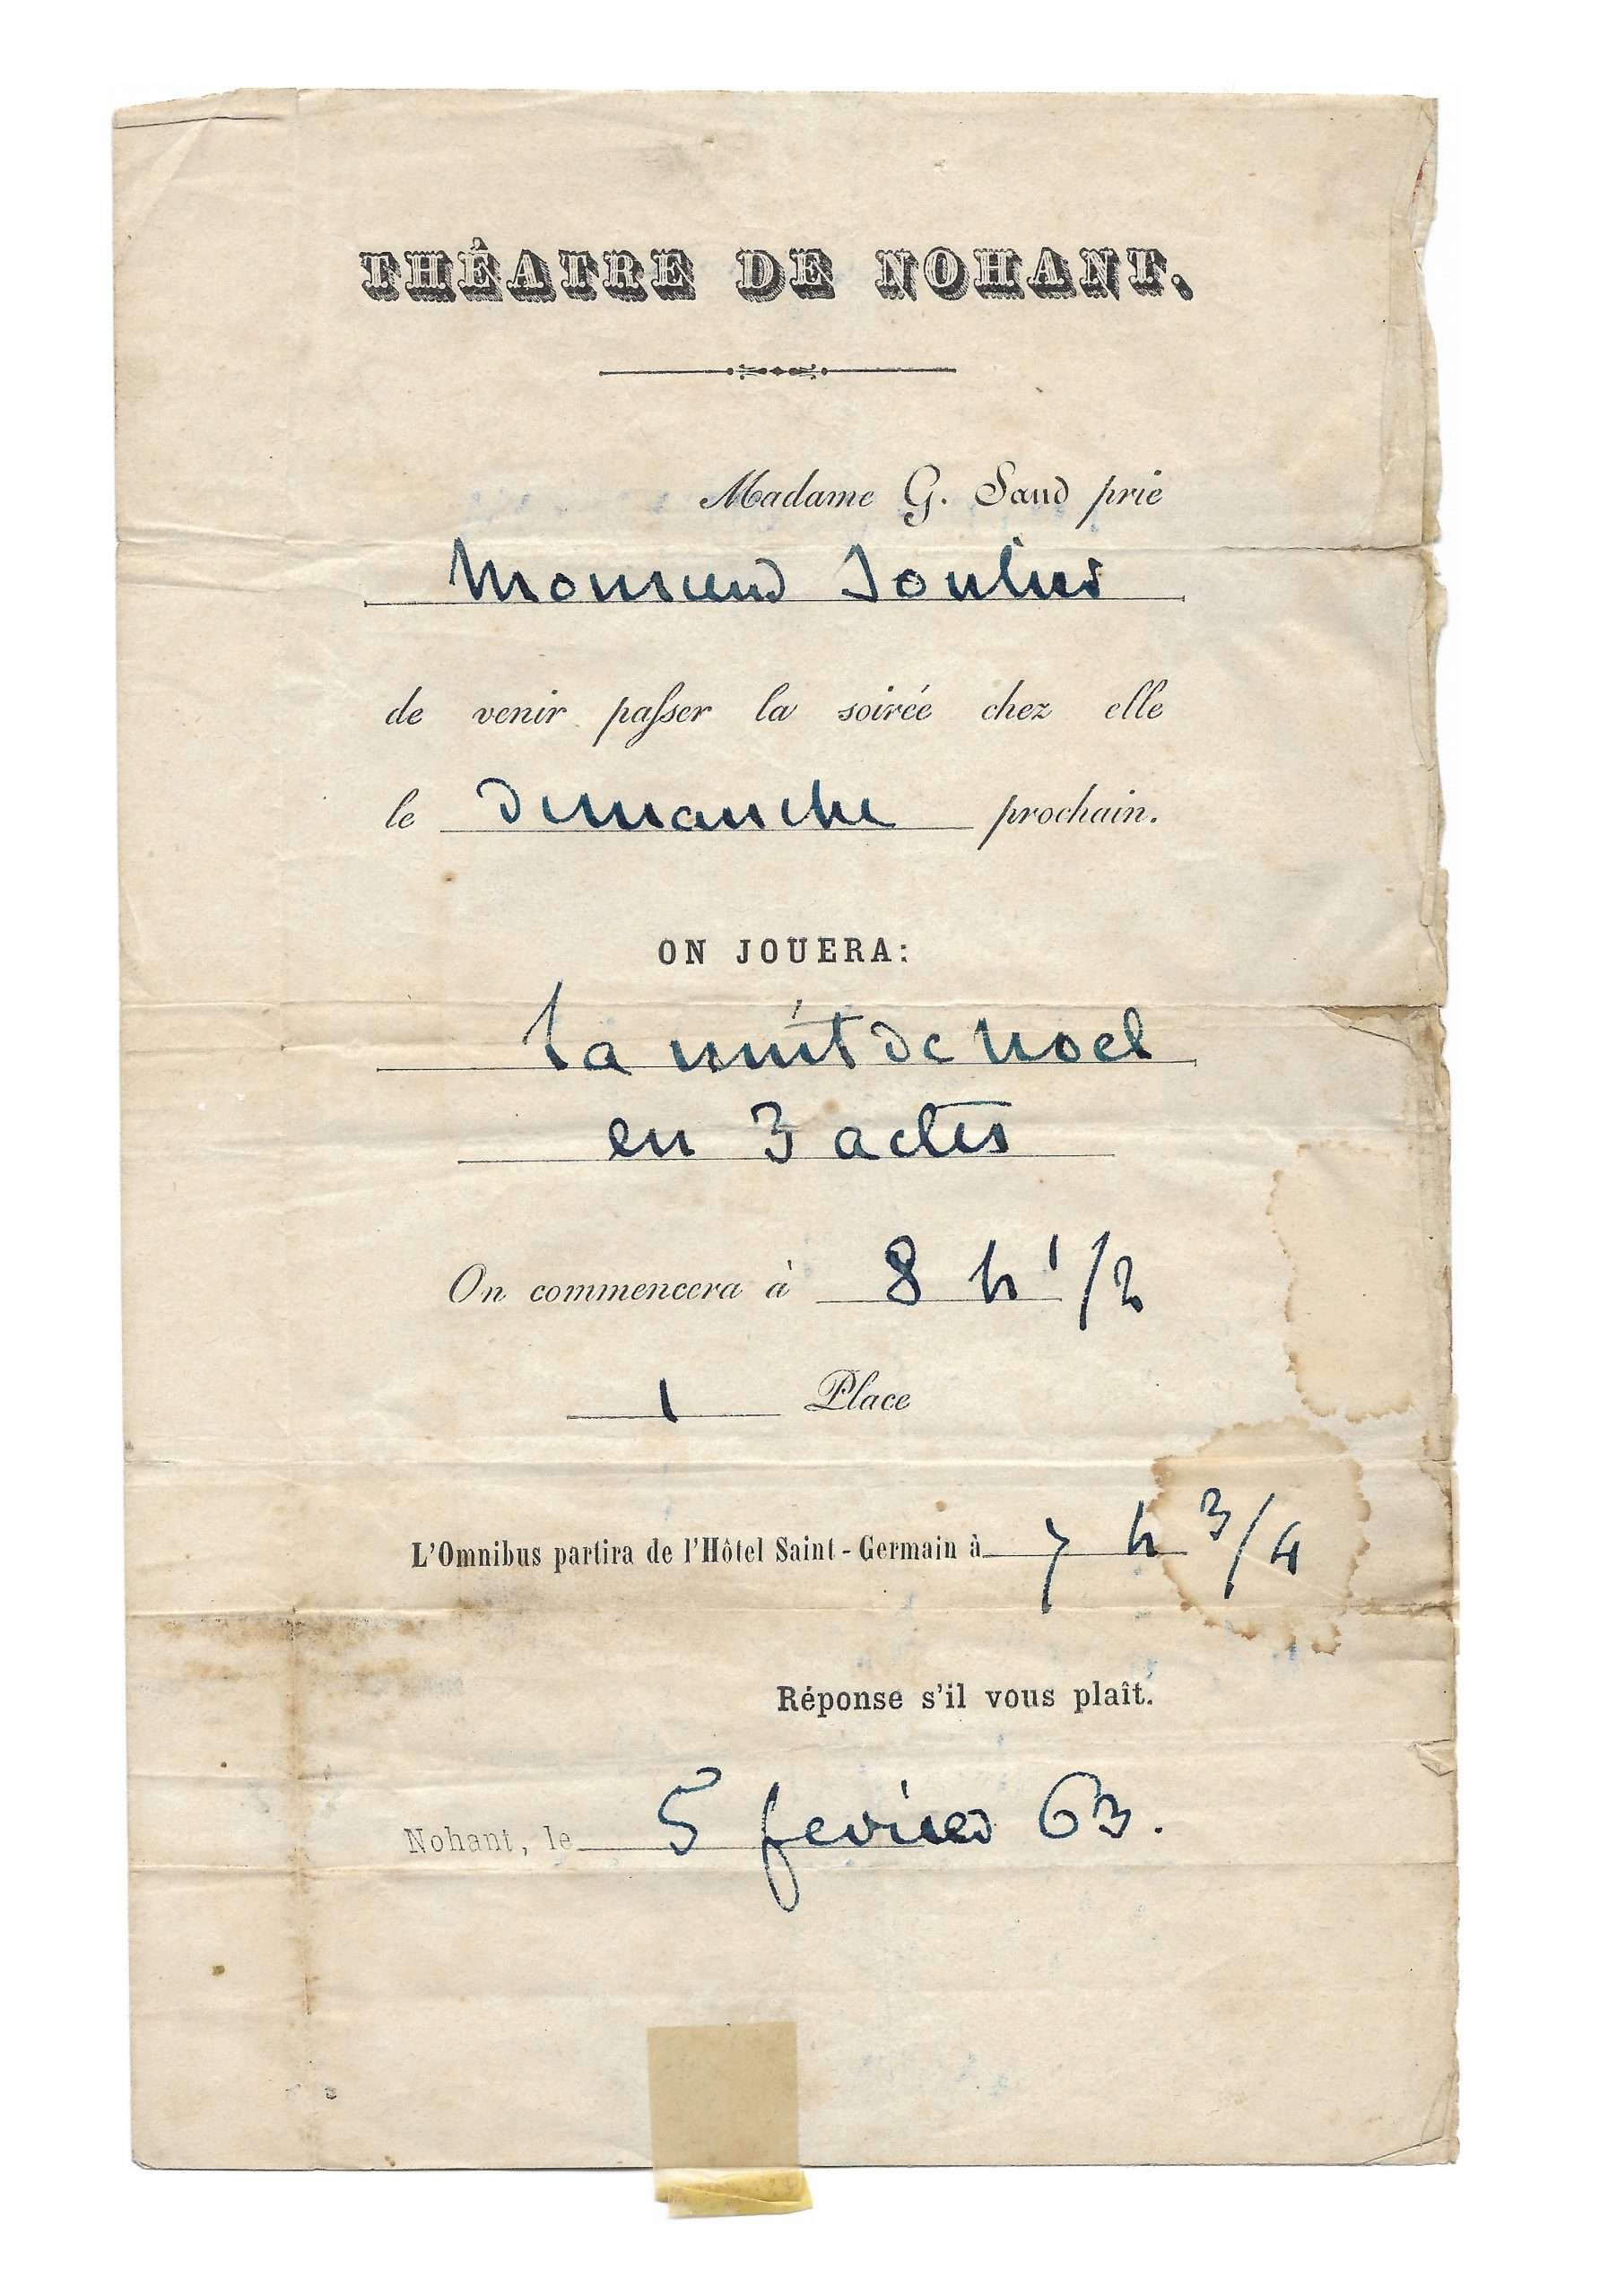 THÉATRE DE NOHANT.
Madame G. Sand prie
Monsieur Soulier
de venir passer la soirée chez elle
le dimanche prochain.
ON JOUERA:
la nuit de noel
en 3 actes
On commencera à 8 h 1/2
1 Place
L'Omnibus partira de l'Hôtel Saint-Germain à 7 h 3/4
Réponse s'il vous plaît.
Nohant, le 5 fevrier 63.